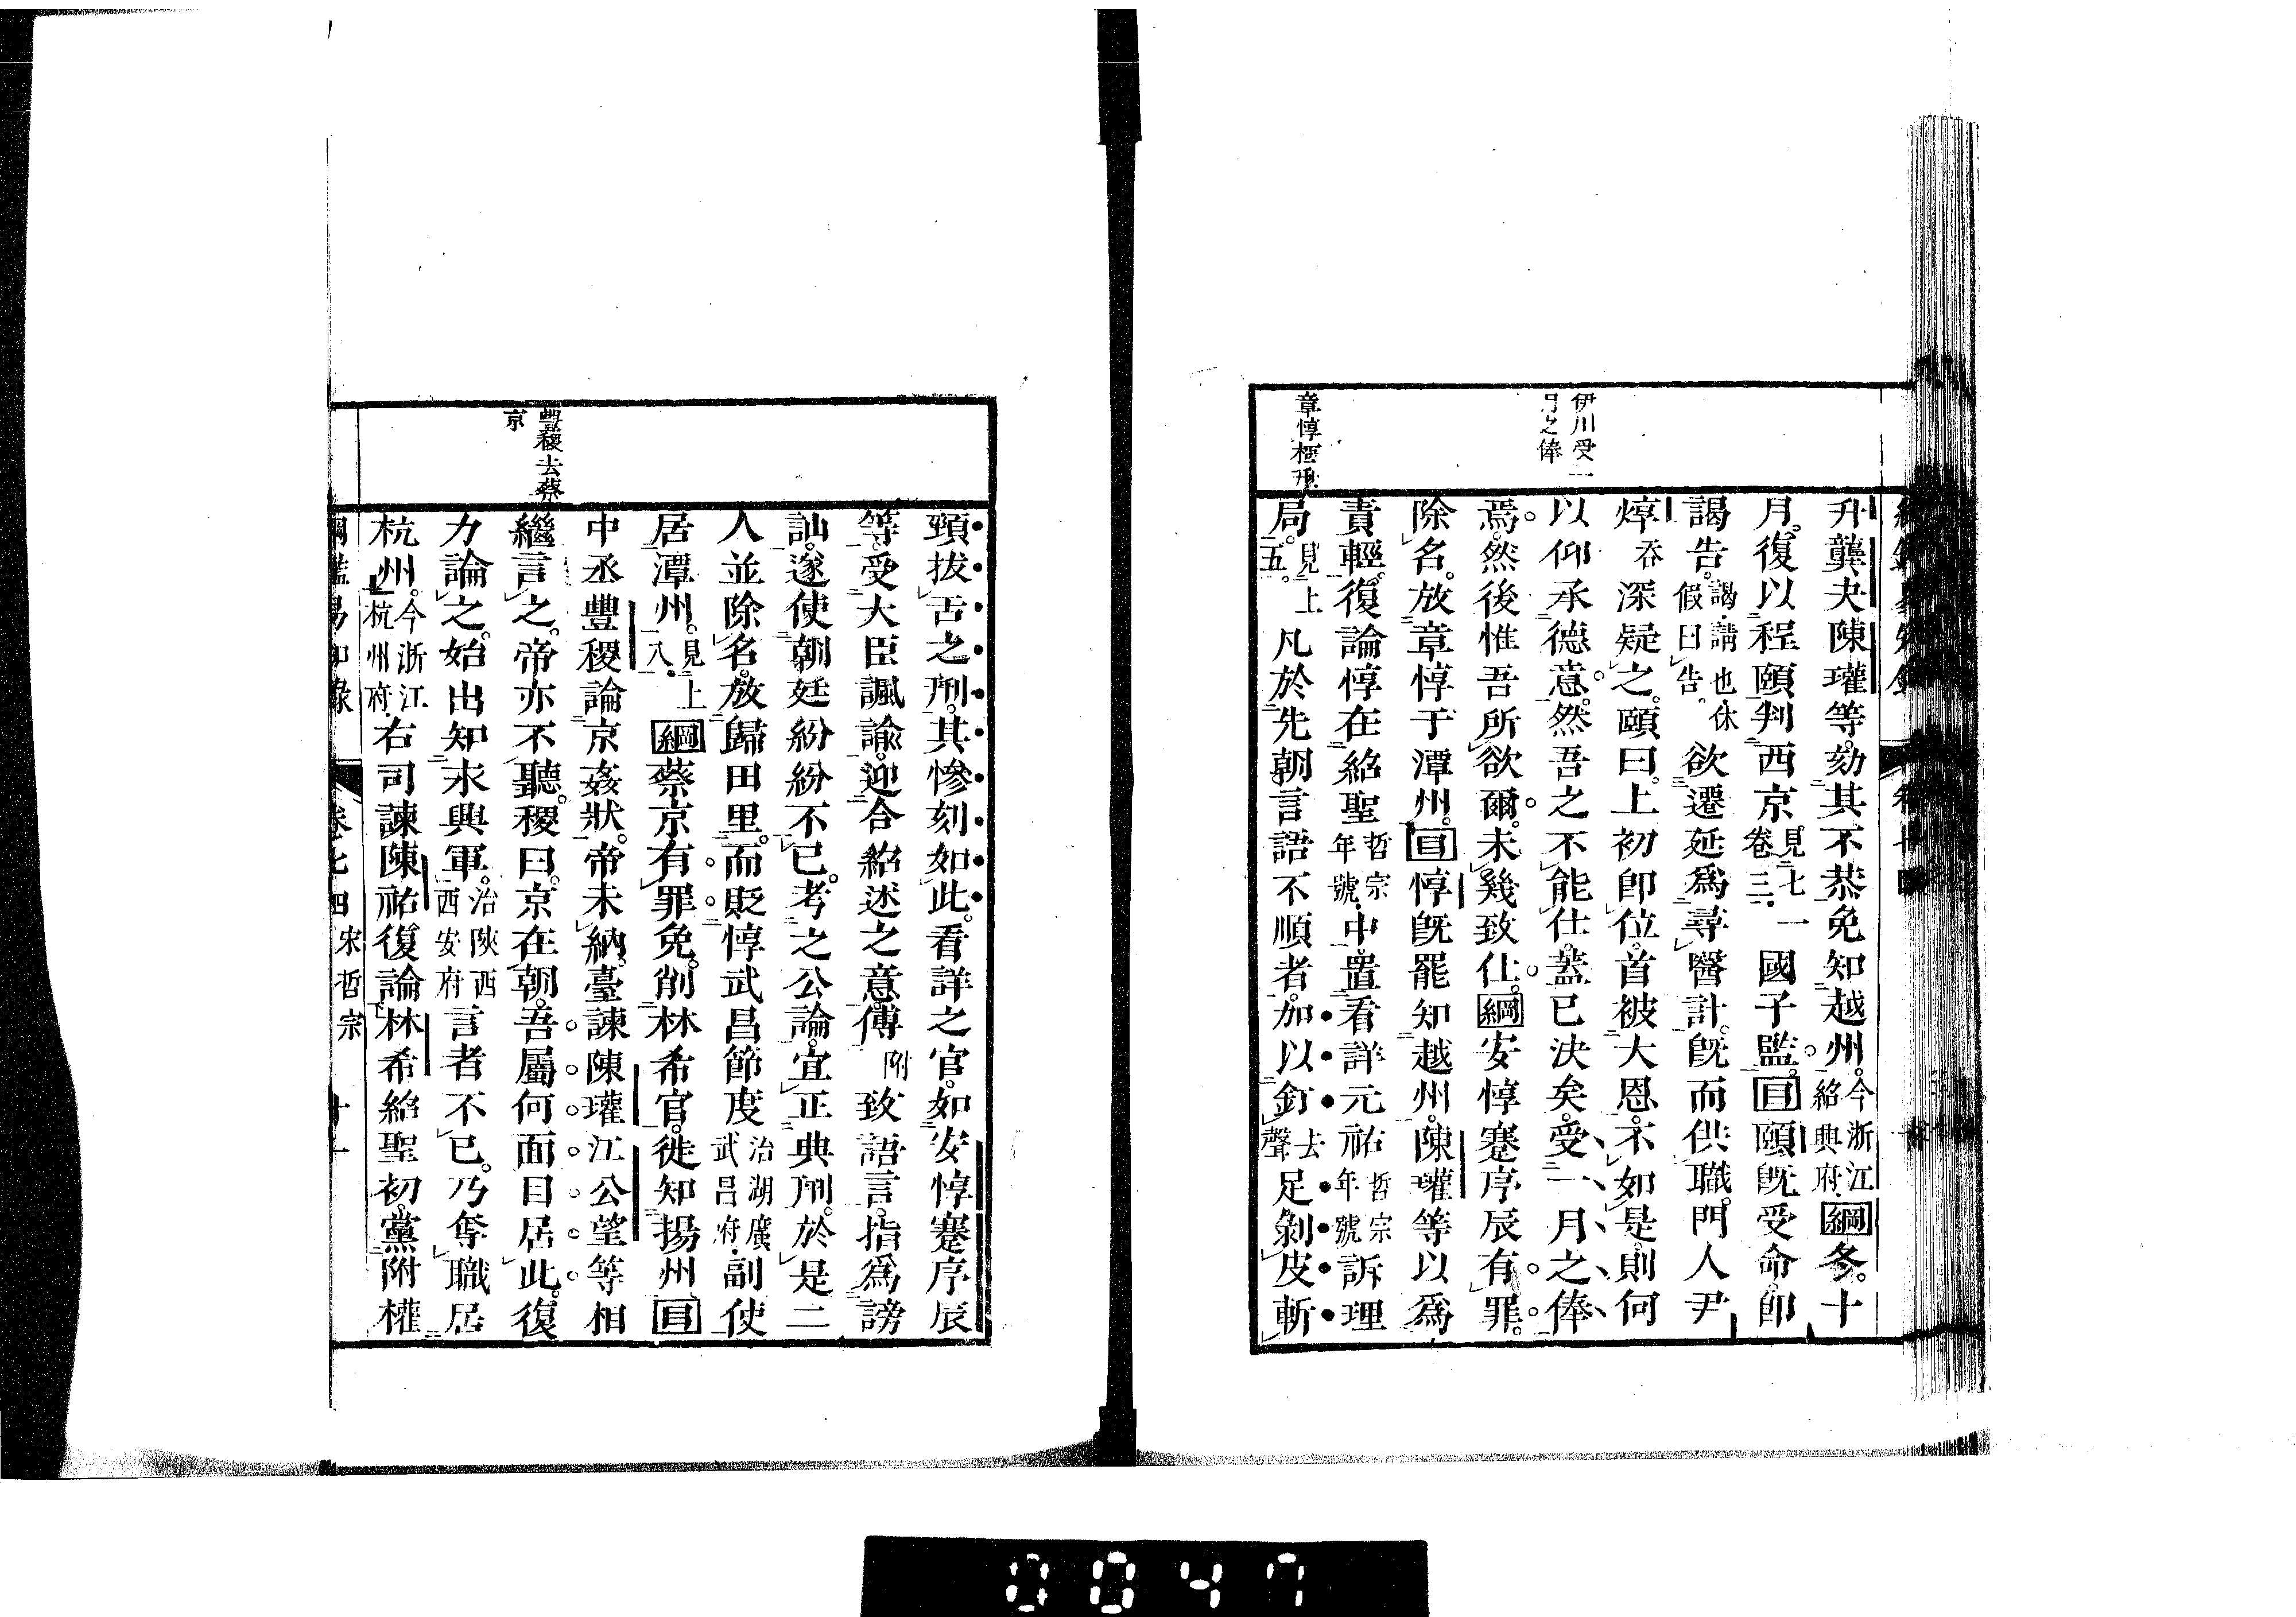 伊川受一
月之俸
章惇極刑
升龔夬陳瓘等。劾其不恭免知越州。今浙江紹興府。綱冬。十
月。復以程頤判西京見七一卷三。國子監。目頤既受命。即
謁告。謁、請也、休假曰告。欲遷延爲尋醫計。既而供職。門人尹
焞吞深疑之。頤曰。上初即位。首被大恩。不如是。則何
以仰承德意。然吾之不能仕。蓋已決矣。受一月之俸
焉。然後惟吾所欲爾。未幾致仕。綱安惇蹇序辰有罪。
除名。放章惇于潭州。目惇既罷知越州。陳瓘等以爲
責輕。復論惇在紹聖哲宗年號。中。置看詳元祐哲宗年號訴理
局。見上五。凡於先朝言語不順者。加以釘去聲足剝皮斬
豐稷去蔡
京
頸拔舌之刑。其慘刻如此。看詳之官。如安惇蹇序辰
等。受大臣諷諭。迎合紹述之意。傅附致語言。指爲謗
訕。遂使朝廷紛紛不已。考之公論。宜正典刑。於是二
人並除名。放歸田里。而貶惇武昌節度治湖廣武昌府。副使
居潭州。見上八。綱蔡京有罪免。削林希官。徙知揚州目
中丞豐稷論京姦狀。帝未納。臺諫陳瓘江公望等相
繼言之。帝亦不聽。稷曰。京在朝。吾屬何面目居此。復
力論之。始出知永興軍。治陝西西安府言者不已。乃奪職居
杭州。今浙江杭州府。右司諫陳祐復論林希紹聖初。黨附權
綱鑑易知錄 卷七四 宋哲宗 廿一
0047